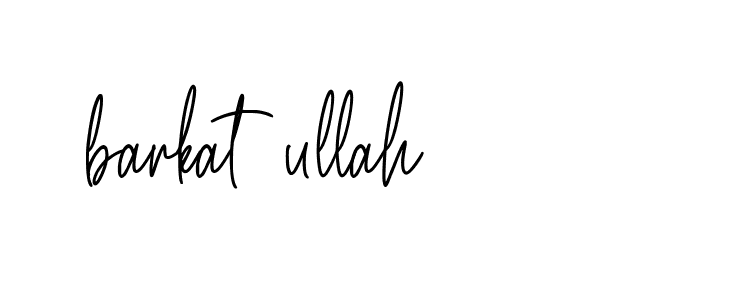 barkat ullah